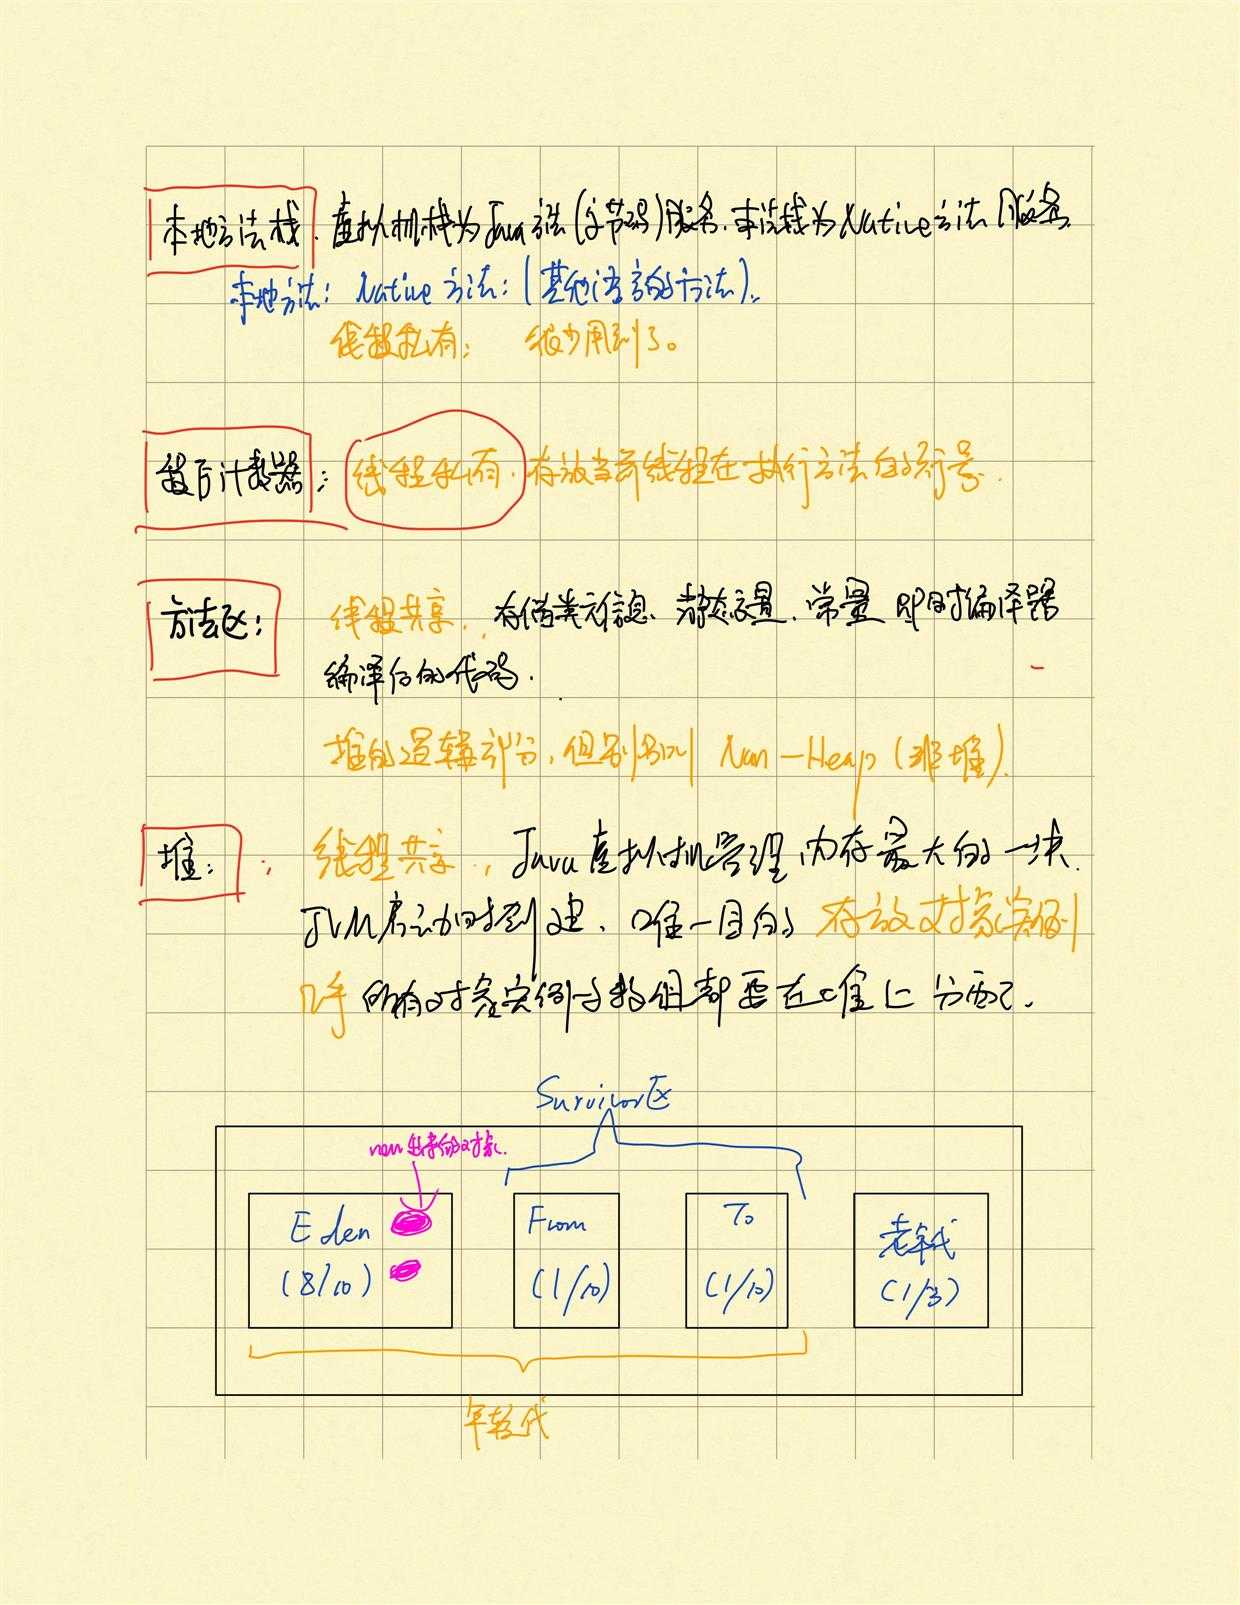 本地方法栈. 虚拟机栈为Java方法(字节码)服务. 本法栈为Native方法服务.
本地方法: Native方法: (其他语言的方法).
线程私有; 很少用到了。
程序计数器: 线程私有. 存放当前线程在执行方法的行号.
方法区: 线程共享. 存储类元信息、静态变量. 常量 即时编译器
编译后的代码.
堆的逻辑部分, 但别名叫 Non-Heap (非堆).
堆: 线程共享, Java虚拟机管理内存最大的一块.
JVM启动时创建. 唯一目的 存放对象实例
几乎 所有对象实例与数组都要在堆上分配.
Survivor区
new出来的对象.
Eden
(8/10)
From
(1/10)
To
(1/10)
老年代
(1/3)
年轻代